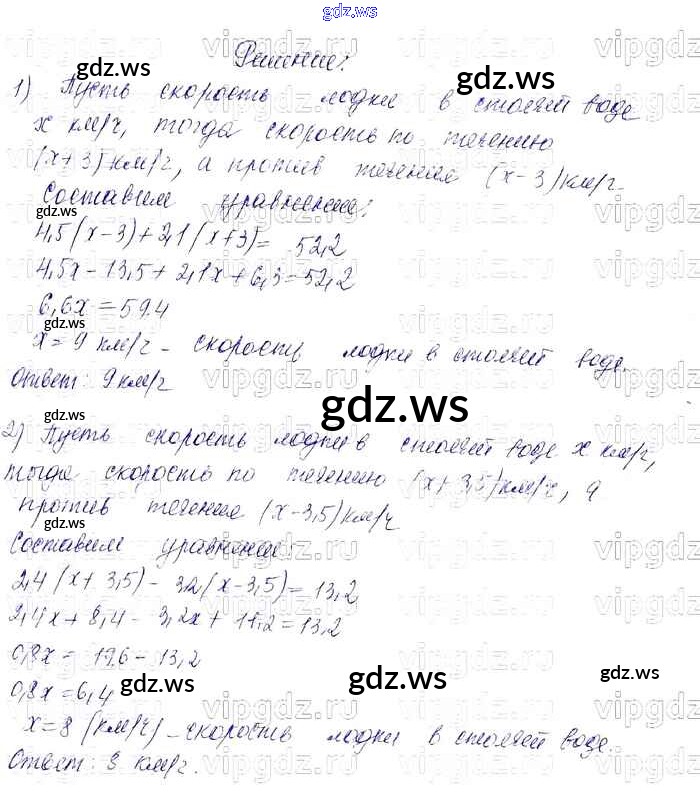 gdz.ws
Решение:
gdz.ws
gdz.ws
1) Пусть скорость лодки в стоячей воде
x км/ч, тогда скорость по течению
(x+3) км/ч, а против течения (x-3) км/ч.
Составим уравнение:
gdz.ws
4,5(x-3)+2,1(x+3)= 52,2
4,5x-13,5+2,1x+6,3=52,2
6,6x=59.4
gdz.ws
x=9 км/ч - скорость лодки в стоячей воде.
Ответ: 9 км/ч
gdz.ws
gdz.ws
2) Пусть скорость лодки в стоячей воде x км/ч,
тогда скорость по течению (x+3,5) км/ч, а
против течения (x-3,5) км/ч
gdz.ws
Составим уравнение:
2,4(x+3,5)-3,2(x-3,5)=13,2
2,4x+8,4-3,2x+11,2=13,2
0,8x=19.6-13,2
0,8x=6,4
gdz.ws
gdz.ws
gdz.ws
x=8 (км/ч) - скорость лодки в стоячей воде.
Ответ: 8 км/ч.
gdz.ws